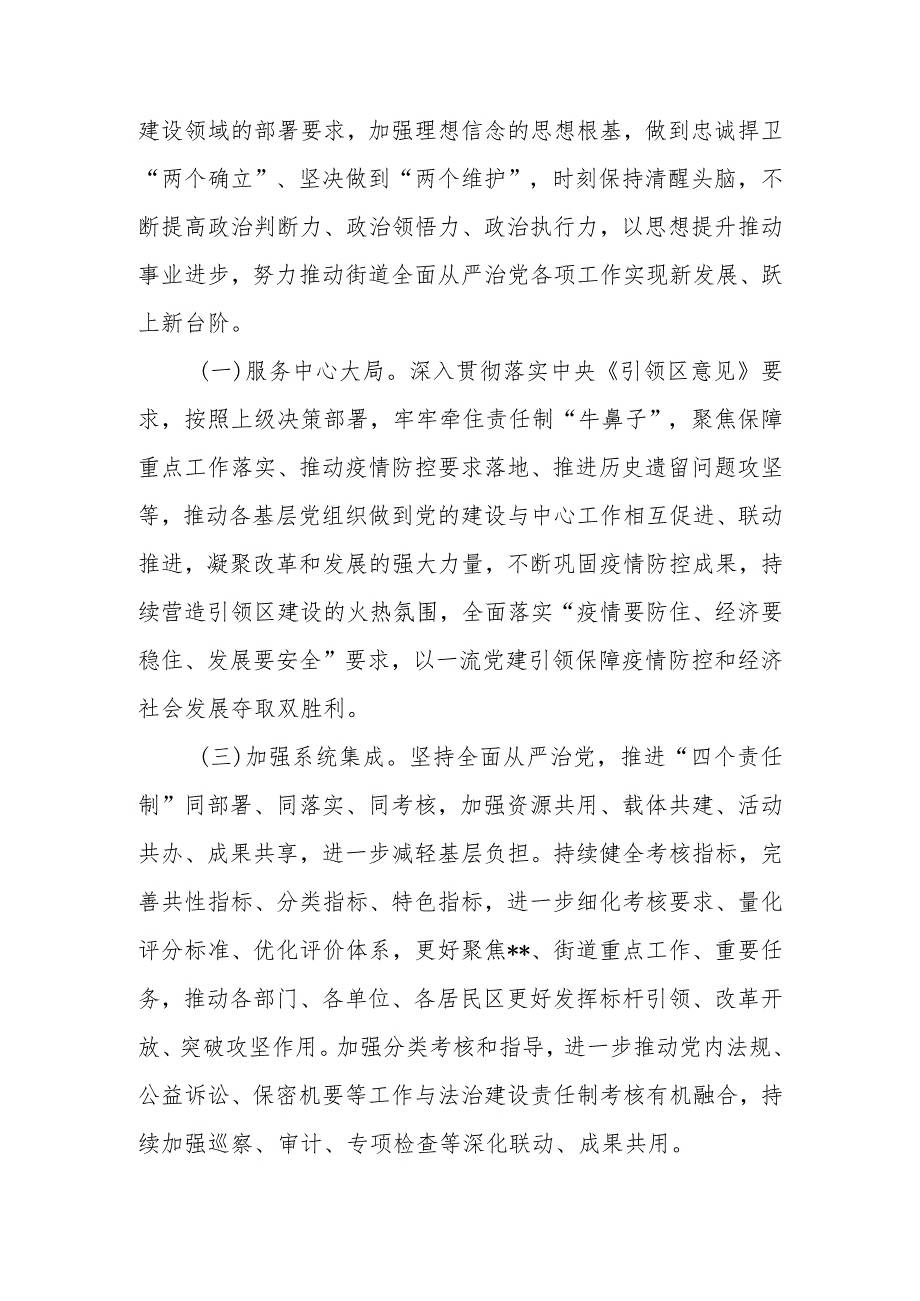 建设领域的部署要求，加强理想信念的思想根基，做到忠诚捍卫
“两个确立”、坚决做到“两个维护”，时刻保持清醒头脑，不
断提高政治判断力、政治领悟力、政治执行力，以思想提升推动
事业进步，努力推动街道全面从严治党各项工作实现新发展、跃
上新台阶。
(一)服务中心大局。深入贯彻落实中央《引领区意见》要
求，按照上级决策部署，牢牢牵住责任制“牛鼻子”，聚焦保障
重点工作落实、推动疫情防控要求落地、推进历史遗留问题攻坚
等，推动各基层党组织做到党的建设与中心工作相互促进、联动
推进，凝聚改革和发展的强大力量，不断巩固疫情防控成果，持
续营造引领区建设的火热氛围，全面落实“疫情要防住、经济要
稳住、发展要安全”要求，以一流党建引领保障疫情防控和经济
社会发展夺取双胜利。
(三)加强系统集成。坚持全面从严治党，推进“四个责任
制”同部署、同落实、同考核，加强资源共用、载体共建、活动
共办、成果共享，进一步减轻基层负担。持续健全考核指标，完
善共性指标、分类指标、特色指标，进一步细化考核要求、量化
评分标准、优化评价体系，更好聚焦**、街道重点工作、重要任
务，推动各部门、各单位、各居民区更好发挥标杆引领、改革开
放、突破攻坚作用。加强分类考核和指导，进一步推动党内法规、
公益诉讼、保密机要等工作与法治建设责任制考核有机融合，持
续加强巡察、审计、专项检查等深化联动、成果共用。